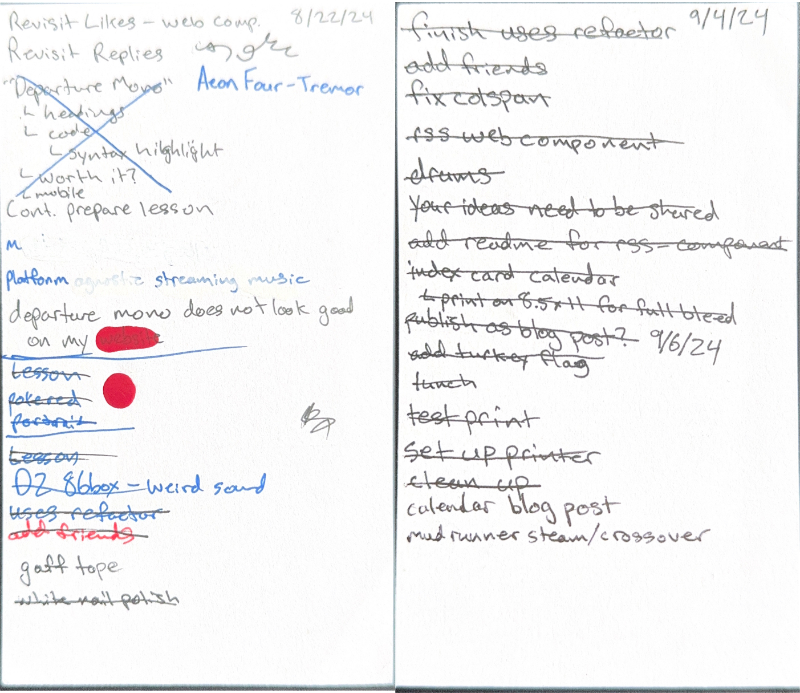 Revisit Likes - web comp. 8/22/24
Revisit Replies
"Departure Mono" Aeon Four-Tremor
↳ headings
↳ code
↳ syntax highlight
↳ worth it?
↳ mobile
Cont. prepare lesson
M
platform agnostic streaming music
departure mono does not look good
on my
Lesson
pokered
portrait
Lesson
OZ 86box - weird sound
uses refactor
add friends
gaff tape
white nail polish
9/4/24
finish uses refactor
add friends
fix colspan
rss web component
drums
Your ideas need to be shared
add readme for rss-component
index card calendar
↳ print on 8.5x11 for full bleed
publish as blog post? 9/6/24
add turkey flag
lunch
test print
set up printer
clean up
calendar blog post
mudrunner steam/crossover